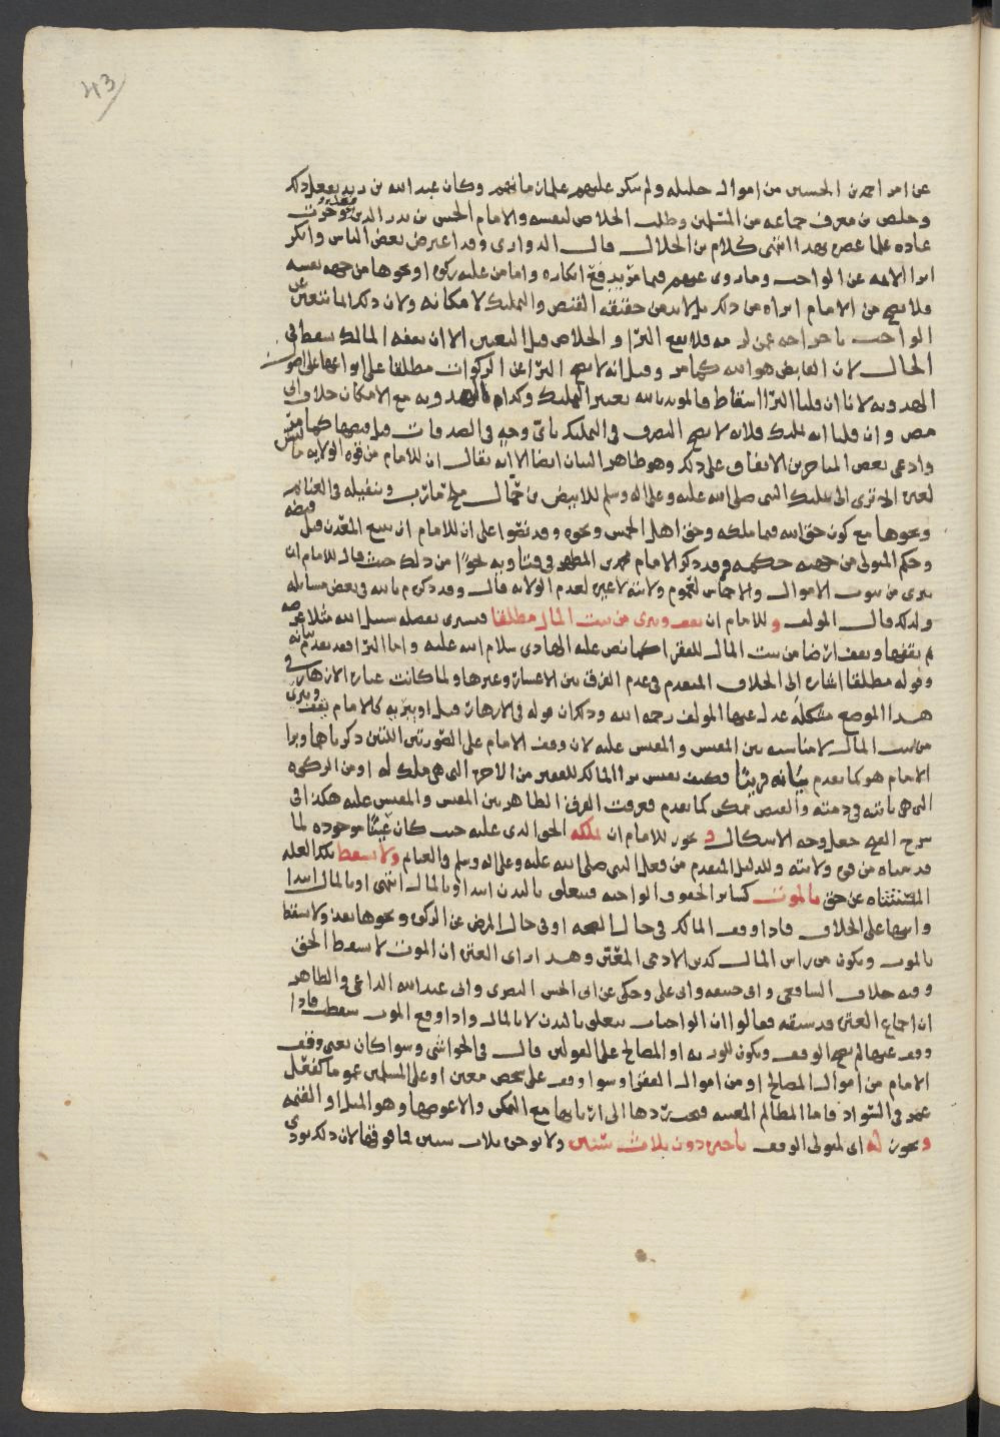 43
عن امر احمد بن الحسين من اموال جليله ولم ينكر عليهم علمان مانهم وكان عبد الله بن زيد يفعل ذلك
وخلص بن معرف جماعه من المسلمين وطلب الخلاص لنفسه والامام الحسن بن بدر الدين
عاده علما عصره بهذا انتهى كلام بن الجلال قال الدواري وقد اعترض بعض الناس وانكر
ابرا الائمه عن الواجب وما روى عنهم فيما مؤيد فع انكاره واما من عليه زكوه او نحوها من جهه نفسه
فلا يصح من الامام ابراه من ذلك بل لابد من حقيقه القبض والتمليك لامكانه ولان ذلك انما
الواجب باخراجه عن
الحال لان القابض هو الله كما مر وقيل انه لا يصح البرا عن الزكوات مطلقا على انواعها
لانا ان قلنا البرا اسقاط فالمؤيد بالله يعتبر التمليك وكذا مع الامكان خلاف ابي
مضر وان قلنا انه تمليك فلانه لا يصح التصرف في التمليك باي وجه في الصدقات قبل قبضها كما
وادعى بعض المتاخرين الاتفاق على ذلك وهو ظاهر البيان ايضا الا انه يقال ان للامام من قوه الولايه ما ليس
لغيره الا ترى الى تمليك النبي صلى الله عليه وعلى اله وسلم للابيض بن حمال ملح مارب وتنفيله في الغنايم
ونحوها مع كون حق الله فيما ملكه وحق اهل الخمس ونحوه وقد نصوا على ان للامام ان يبيع المعدن قبل قبضه
وحكم المتولي من جهته حكمه وقد ذكر الامام محمد بن المطهر في فتاويه نحوًا من ذلك حيث قال للامام ان
يبرى من بيوت الاموال والاخماس لعموم ولايته لا غيره لعدم الولايه قال وقد ذكره م بالله في بعض مسايله
ولذلك قال المولف وللامام ان يقف ويبرى من بيت المال مطلقا فيسرى بفصله سبيل الله مثلا
ثم يقفها ويقف ارضا من بيت المال للفقرا كما نص عليه الهادي سلام الله عليه واما البرا فقد تقدم بيانه
وقوله مطلقا اشاره الى الخلاف المتقدم في عدم الفرق بين الاعسار وغيرها ولما كانت عباره الازهار في
هذا الموضع مشكله عدل عنها المولف رحمه الله وذلك ان قوله في الازهار قيل او يبريه كالامام يقف ويبرى
من بيت المال لا مناسبه بين المقيس والمقيس عليه لان وقف الامام على الصورتين اللتين ذكرناهما وبرا
الامام هو كما تقدم بيانه قريبًا فكيف نقيس برا المالك للفقير من الاجره التي هي ملك له او من الزكوه
التي هي ثابته في ذمته والقبض ممكن كما تقدم فعرفت الفرق الظاهر بين المقيس والمقيس عليه هكذا في
شرح الفتح جعل وجه الاشكال و يجوز للامام ان يملكه الحق الذي عليه حيث كان عينًا موجوده لما
قدمناه من قوه ولايته وللدليل المتقدم من فعل النبي صلى الله عليه وعلى اله وسلم والغنايم ولا يسقط تلك الغله
المستثناه عن حق بالموت كساير الحقوق الواجبه فيتعلق بالبدن ابتدا وبالمال انتهى او بالمال ابتدا
وانتها على الخلاف فاذا وقف المالك في حال الصحه او في حال المرض عن الزكوه ونحوها نفذ ولا يسقط
بالموت ويكون من راس المال كدين الادمي المعين وهذا راي العتره ان الموت لا يسقط الحق
وفيه خلاف الشافعي وابي حنيفه وابي علي وحكي عن ابي الحسن البصري وابي عبد الله الداعي والظاهر
ان اجماع العتره قد سبقه فقالوا ان الواجبات تتعلق بالبدن لا بالمال واذا وقع الموت سقطت فاذا
وقف عنها لم يصح الوقف ويكون للورثه او المصالح على القولين قال في الحواشي وسوا كان يعني وقف
الامام من اموال المصالح او من اموال الفقرا وسوا وقف على شخص معين او على المسلمين عموما كفعل
عمر في السواد فاما المظالم المعينه فيجب ردها الى اربابها مع التمكن والا عوضها وهو المثل او القيمه
ويجوز له اي لمتولي الوقف تاجيره دون ثلاث سنين ولا يوجره ثلاث سنين فما فوقها لان ذلك يودي